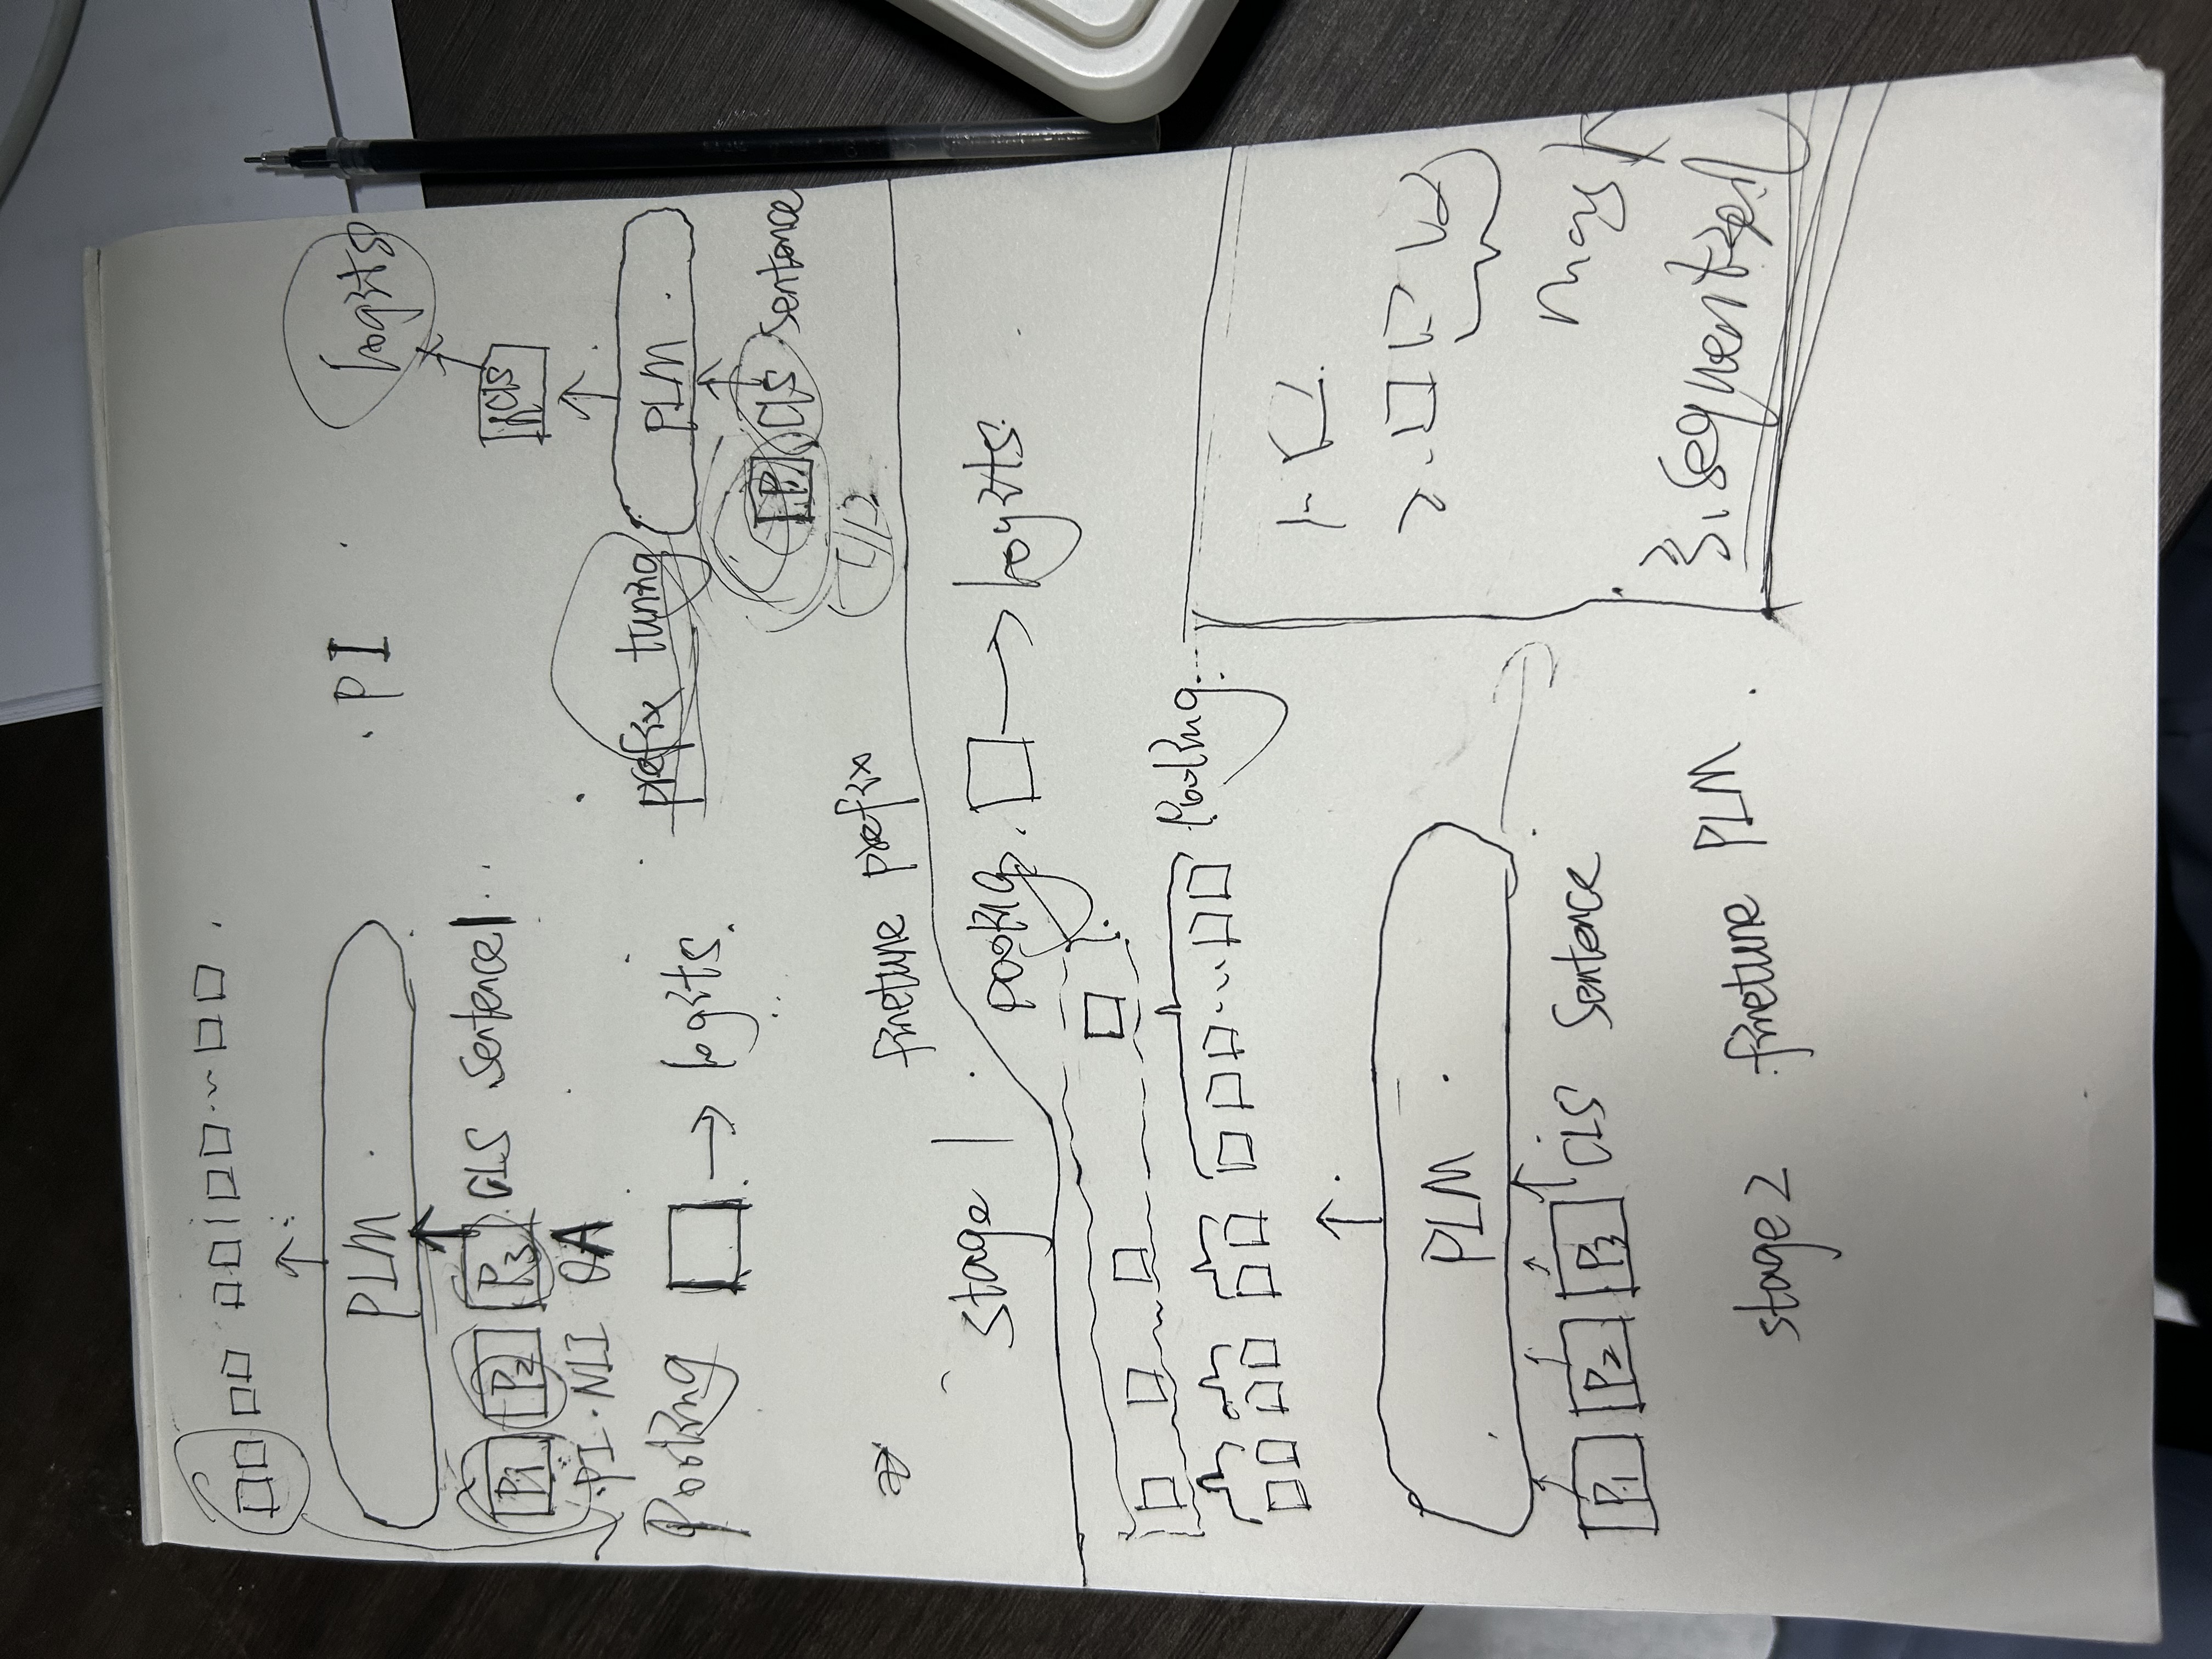 PLM
P1 P2 P3 CLS Sentence1
PI NLI QA
Pooling → logits
PI
logits
hcls
PLM
prefix tuning
P CLS Sentence
finetune prefix
stage 1
pooling → logits
Pooling
PLM
P1 P2 P3 CLS Sentence
stage 2 finetune PLM
1.
2.
mask
3.